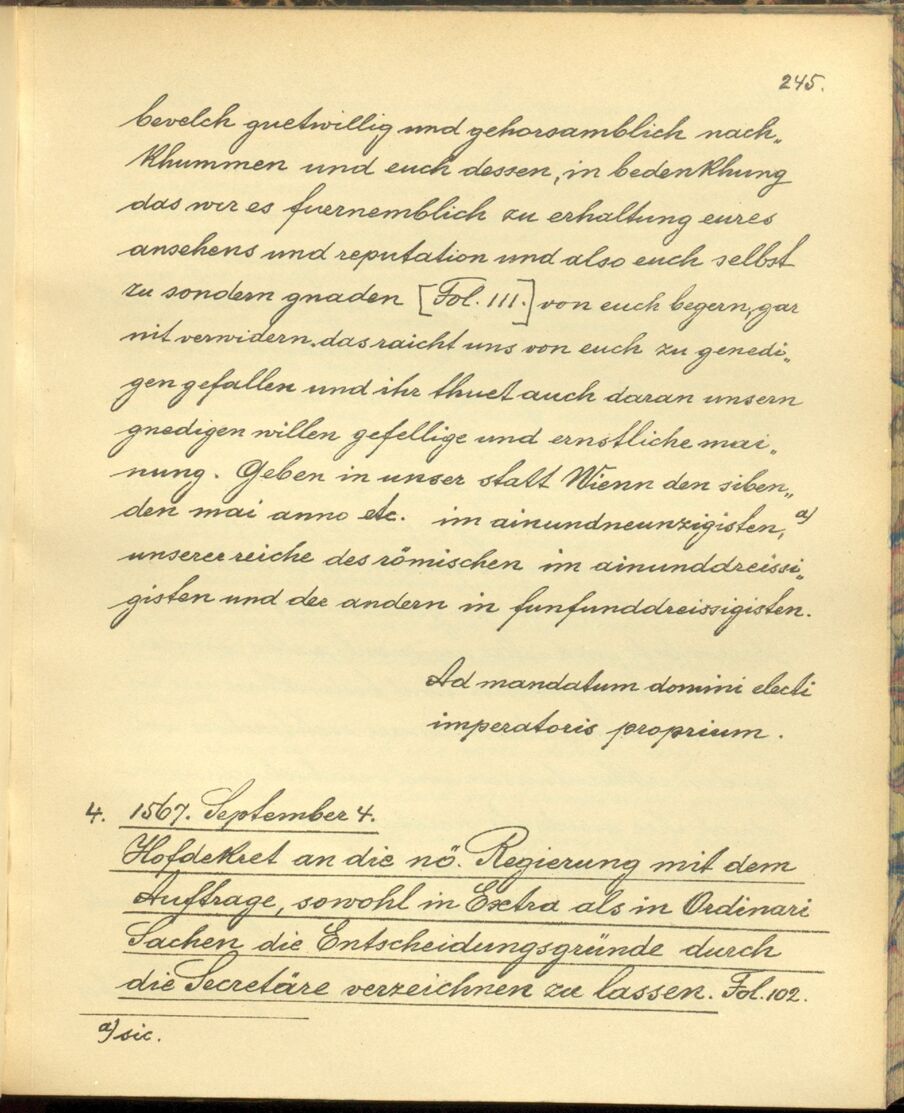 245.
bevelch guetwillig und gehorsamblich nach„
khummen und euch dessen, in bedenkhung
das wir es fuernemblich zu erhaltung eures
ansehens und reputation und also euch selbst
zu sondern gnaden [Fol. 111.] von euch begern, gar
nit verwidern. das raicht uns von euch zu genedi„
gen gefallen und ihr thuet auch daran unsern
gnedigen willen gefellige und ernstliche mai„
nung. Geben in unser statt Wienn den siben„
den mai anno etc. im ainundneunzigisten, a)
unserer reiche des römischen im ainunddreissi„
gisten und der andern in funfunddreissigisten.
Ad mandatum domini electi
imperatoris proprium.
4. 1567. September 4.
Hofdekret an die nö. Regierung mit dem
Auftrage, sowohl in Extra als in Ordinari
Sachen die Entscheidungsgründe durch
die Secretäre verzeichnen zu lassen. Fol. 102.
a) sic.